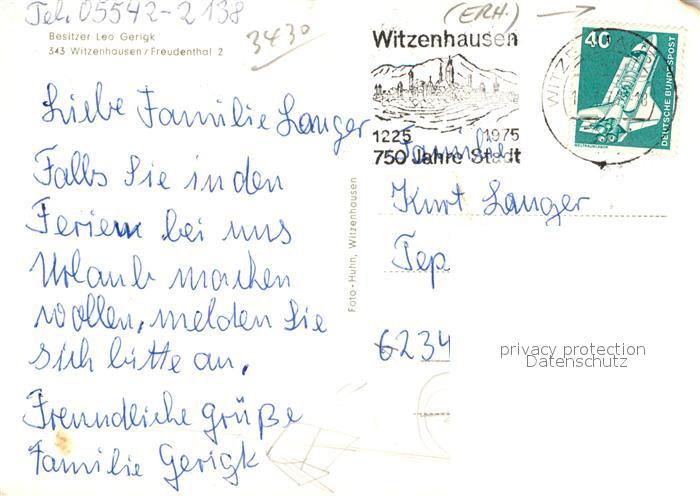 Tel. 05542-2138
Besitzer Leo Gerigk
343 Witzenhausen/Freudenthal 2
3430
Liebe Familie Langer
Falls Sie in den
Ferien bei uns
Urlaub machen
wollen, melden Sie
sich bitte an.
Freundliche Grüße
Familie Gerigk
Foto-Huhn, Witzenhausen
(ERH.)
Witzenhausen
1225 1975
750 Jahre Stadt
40
DEUTSCHE BUNDESPOST
WELTRAUMLABOR
Familie
Kurt Langer
Tep
6234
privacy protection
Datenschutz